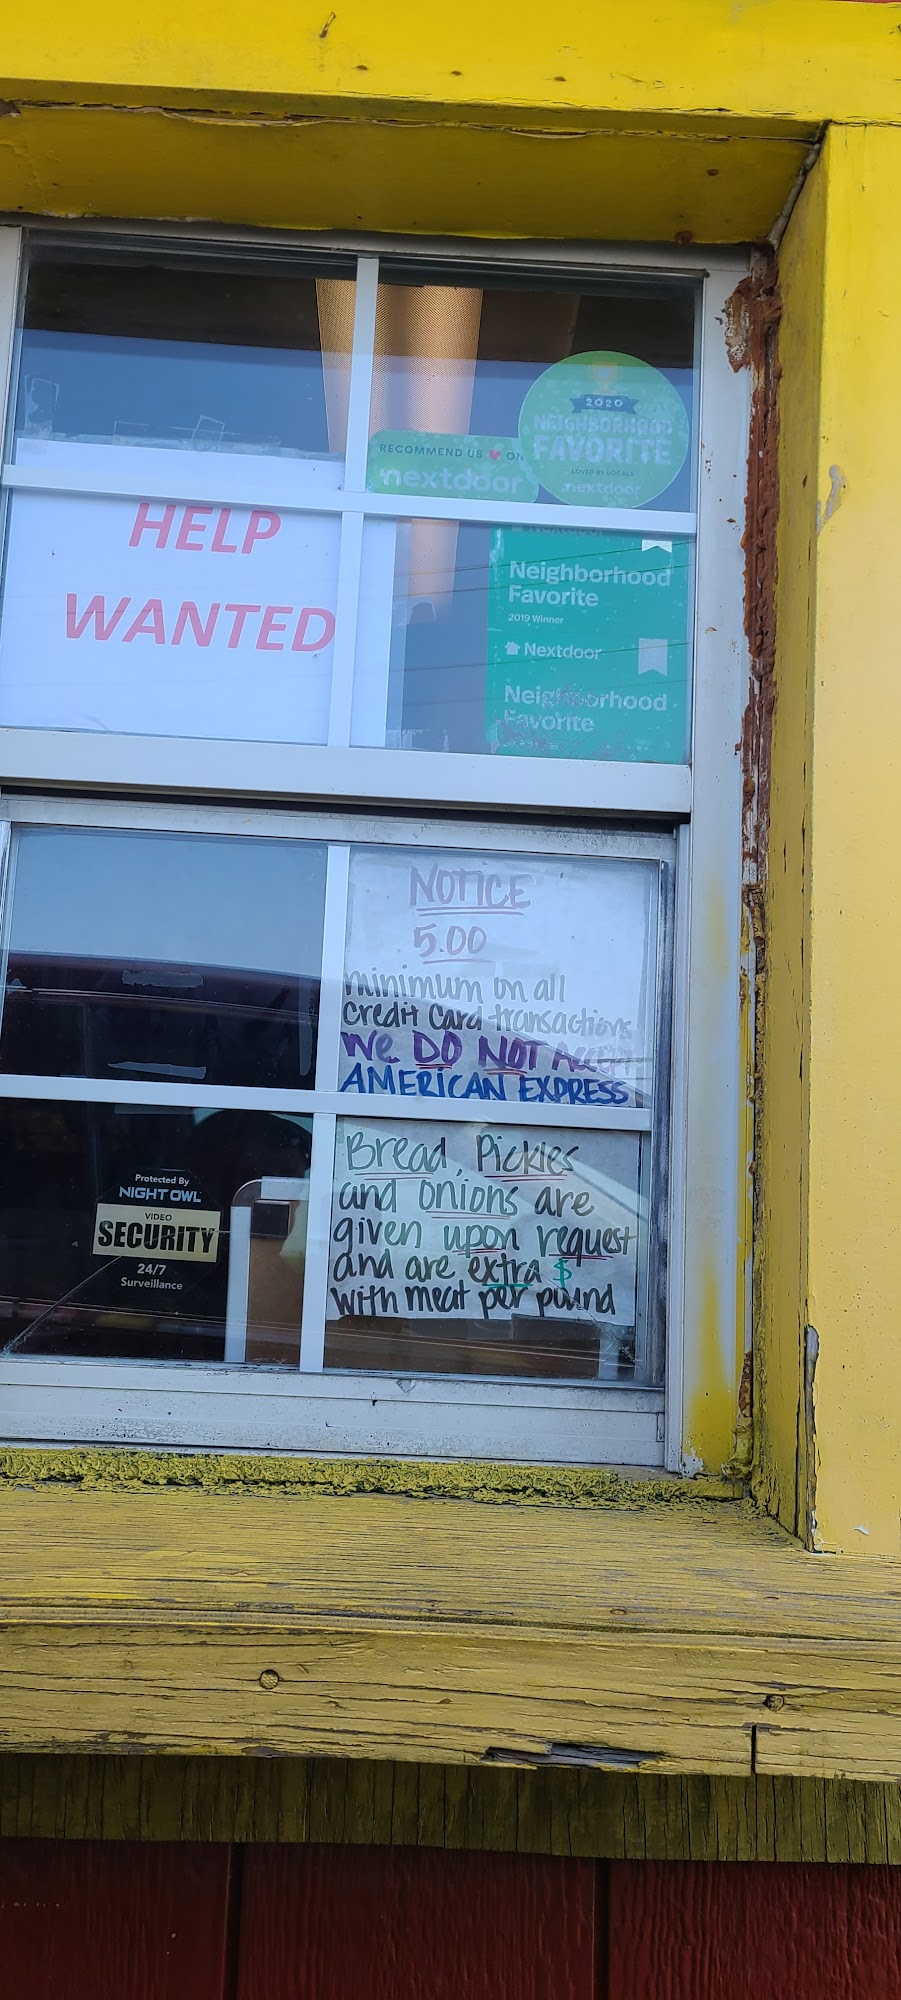 RECOMMEND US ON
nextdoor
2020
NEIGHBORHOOD
FAVORITE
LOVED BY LOCALS
nextdoor
HELP
WANTED
Neighborhood
Favorite
2019 Winner
Nextdoor
Neighborhood
Favorite
NOTICE
5.00
minimum on all
credit Card transactions
We DO NOT Accept
AMERICAN EXPRESS
Bread, Pickles
and onions are
given upon request
and are extra $
with meat per pound
Protected By
NIGHT OWL
VIDEO
SECURITY
24/7
Surveillance